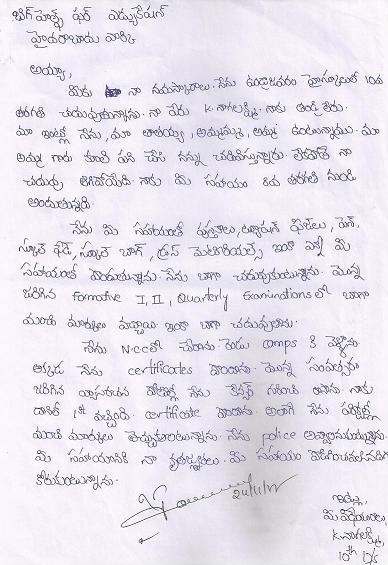 బిగ్ హెల్ప్ ఫర్ ఎడ్యుకేషన్
హైదరాబాదు వారికి
అయ్యా,
మీకు నా నమస్కారాలు. నేను ఉండ్రాజవరం హైస్కూలులో 10వ
తరగతి చదువుతున్నాను. నా పేరు K. నాగలక్ష్మి. నాకు తండ్రి లేరు.
మా ఇంట్లో నేను, మా తాతయ్య, అమ్మమ్మ, అమ్మ ఉంటున్నాము. మా
అమ్మ గారు కూలి పని చేసి నన్ను చదివిస్తున్నారు. లేకపోతే నా
చదువు ఆగిపోయేది. నాకు మీ సహాయం 8వ తరగతి నుండి
అందుతున్నది.
నేను మీ సహాయంతో పుస్తకాలు, ట్యూషన్ ఫీజులు, పెన్,
స్కూల్ ఫీజ్, స్కూల్ బ్యాగ్, డ్రస్ మెటీరియల్స్ ఇంకా ఎన్నో మీ
సహాయంతో పొందుతున్నాను. నేను బాగా చదువుకుంటున్నాను. మొన్న
జరిగిన Formative I, II, Quarterly Examinations లో బాగా
మంచి మార్కులు వచ్చాయి ఇంకా బాగా చదువుతాను.
నేను N.C.C లో చేరాను. రెండు camps కి వెళ్ళాను.
అక్కడ నేను certificates పొందాను. మొన్న సంవత్సరం
జరిగిన వ్యాసరచన పోటీల్లో నేను గురించి రాసాను. నాకు
దానిలో 1st వచ్చింది. certificate పొందాను. అలాగే నేను పరీక్షల్లో
మంచి మార్కులు తెచ్చుకుంటున్నాను. నేను police అవ్వాలనుకుంటున్నాను.
మీ సహాయానికి నా కృతజ్ఞతలు. మీ సహాయం
కోరుకుంటున్నాను.
ఇట్లు,
మీ విధేయురాలు,
K. నాగలక్ష్మి,
10th